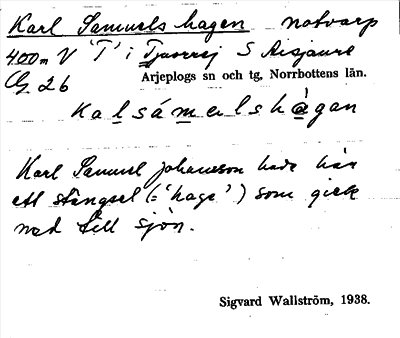 Karl Samuels hagen notvarp
400 m V 'T' i Tjaurrej S Aisjaure
G 26 Arjeplogs sn och tg, Norrbottens län.
kalsámelshàgan
Karl Samuel Johansson hade här
ett stängsel (= 'hage') som gick
ned till sjön.
Sigvard Wallström, 1938.